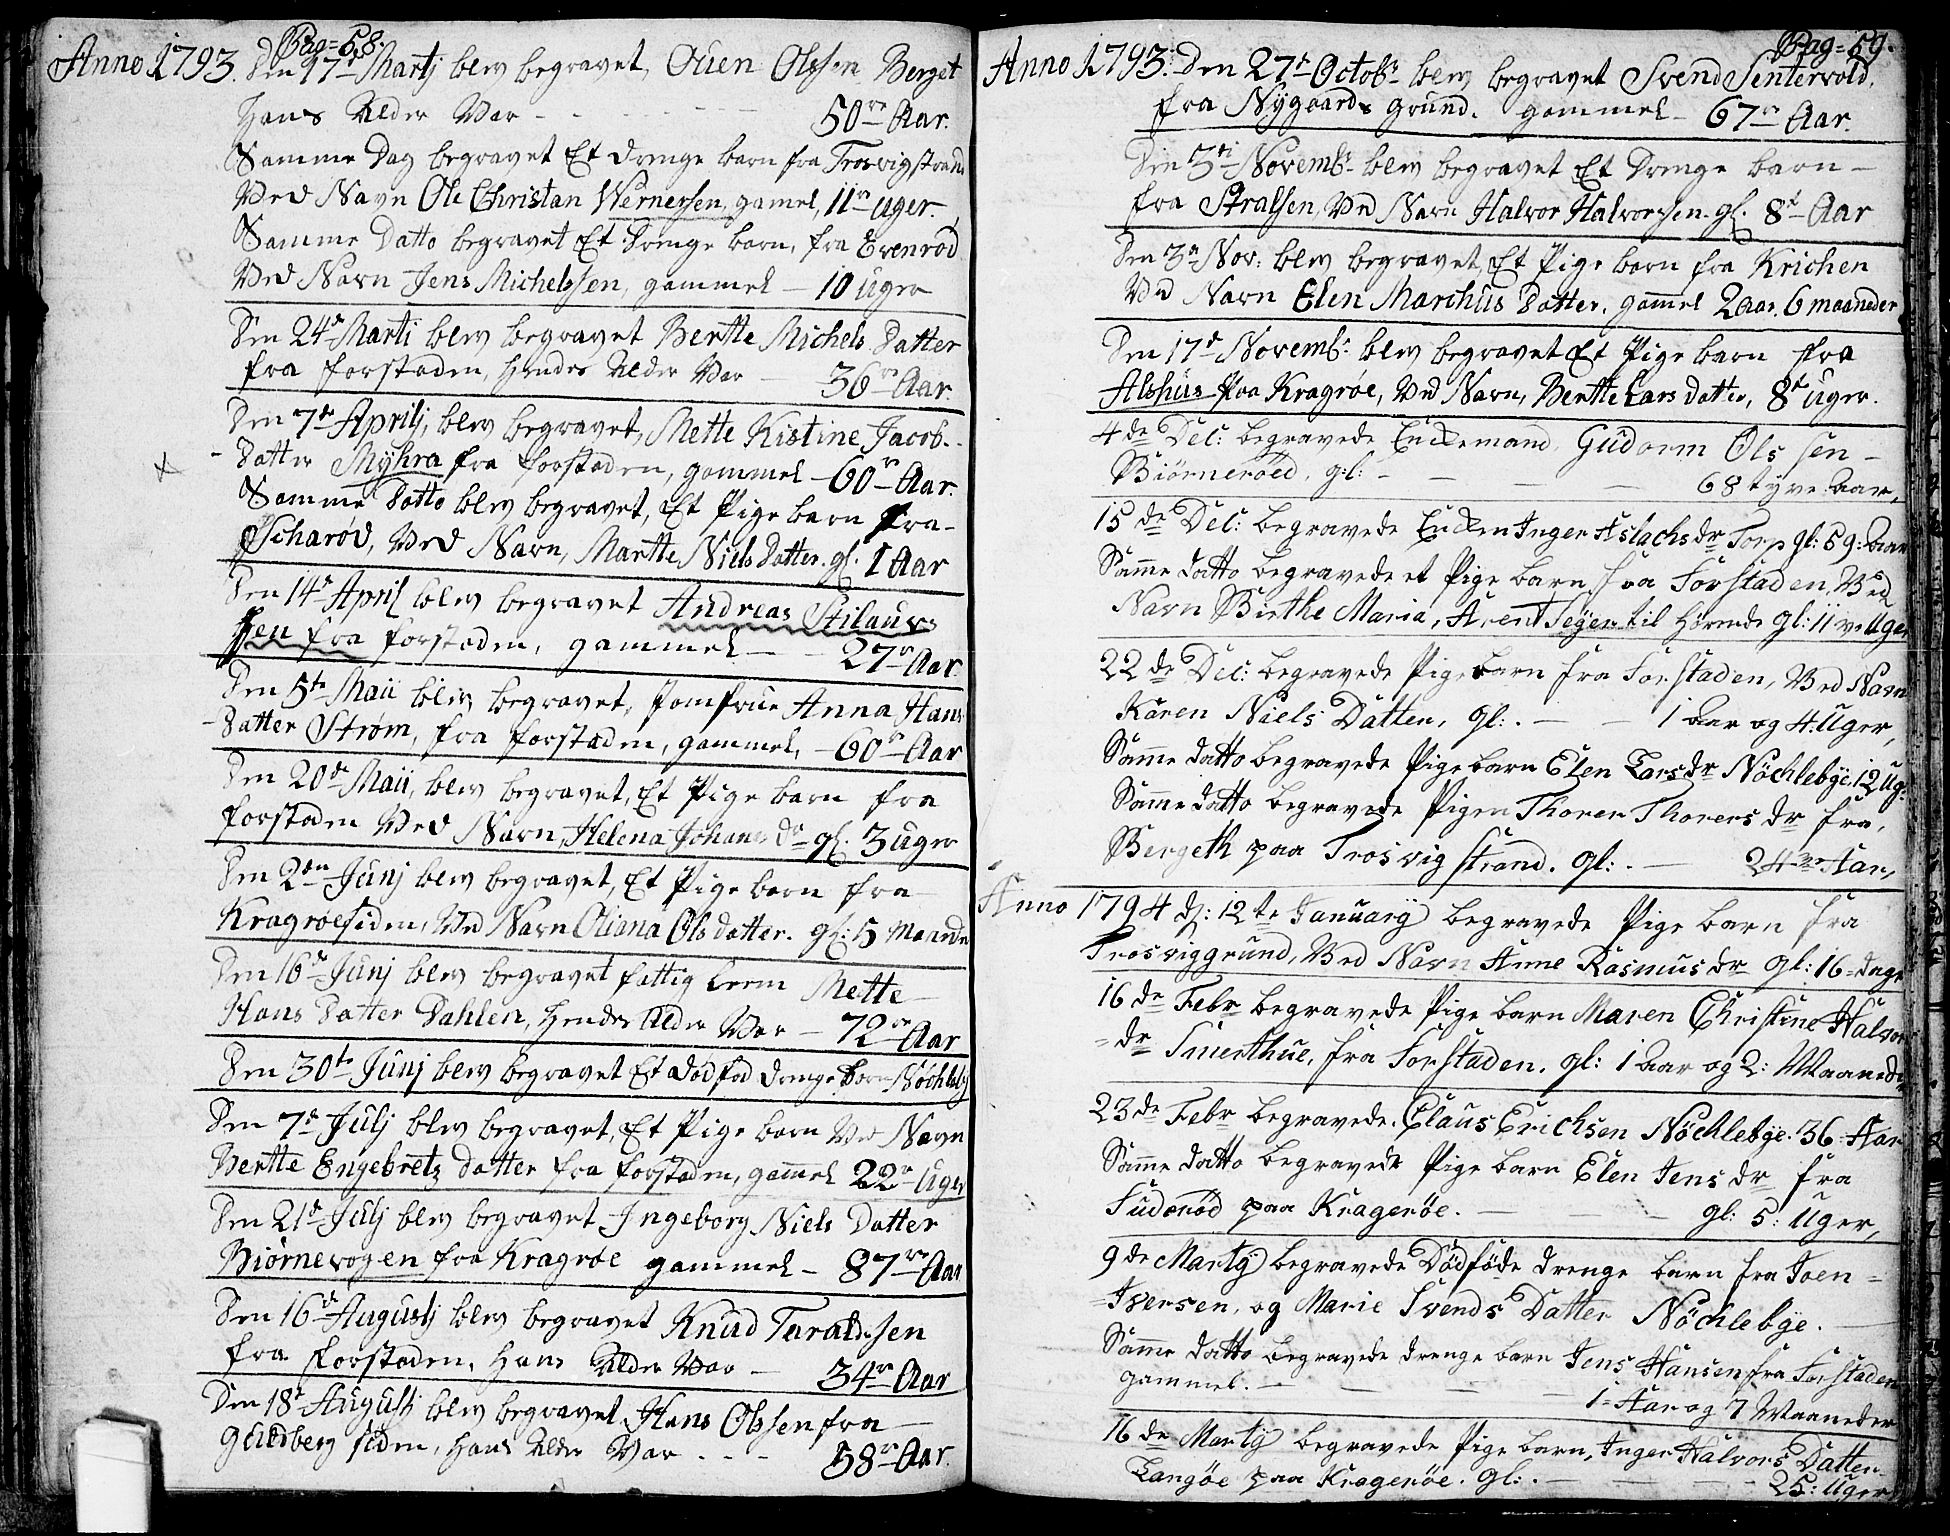 Pag=58.
Anno 1793. Den 17de Martj blev begravet, Ouen Olssen Berget
Hans Alder Var - - - - 50re Aar.
Samme Dag begravet Et drenge barn fra Trosvigstrand
Ved Navn Ole Christan Wernersen, gamel, 11re Uger.
Samme Datto begravet Et drenge barn, fra Evenrod
Ved Navn Jens Michelssen, gammel - 10 Uger
Den 24de Marti blev begravet Bertte Michels Datter
fra forstaden, hendes Alder Var - 36re Aar.
Den 7de Aprilj, blev begravet, Mette Kistine Jacob..
Datter Myhra fra forstaden, gammel - 60re Aar.
Samme Datto blev begravet, Et Pige barn fra-
Scharød, Ved Navn, Martte Niels Datter. gl. 1 Aar
Den 14de April blev begravet Andreas Stilaurs
sen fra forstaden, gammel - - 27re Aar.
Den 5te Maii blev begravet, Jomfrue Anna Hans
Datter Strøm, fra forstaden, gammel, - 60re Aar
Den 20de Maii, blev begravet, Et Pige barn fra
forstaden Ved Navn, Helena Johans dr gl. 3 uger
Den 2den Junj blev begravet, Et Pige barn fra
Kragrøesiden, Ved Navn Oliana Ols datter. gl: 5 Maande
Den 16de Junj blev begravet fattig Mette
Hans Datter Dahlen, hendes Alder Var - 72re Aar
Den 30te Junj blev begravet Et dødfød drenge barn Nøchleby
Den 7de Julj blev begravet, Et Pige barn Ved Navn
Bertte Engebretz datter fra forstaden, gammel 22re Uger
Den 21de Julj blev begravet Ingeborg Niels Datter
Biørnevogen fra Kragrøe gammel - 87re Aar
Den 16de Augustj blev begravet Knud Taraldsen
fra forstaden, Hans Alder Var - 34re Aar
Den 18de Augustj blev begravet, Hans Olssen fra -
Guldberg siden, Hans Alder Var . - - - 58re Aar.
Pag=59.
Anno 1793. Den 27de Octobr blev begravet Svend Sentervold,
fra Nygaards grund. gammel - 67re Aar.
Den 3ti Novembr blev begravet Et Drenge barn -
fra Stralsen, Ved Navn Halvor Halvorssen. gl. 8te Aar
Den 3de Nov: blev begravet, Et Pige barn fra Krichen
Ved Navn Elen Marchus Datter. gammel 2 aar. 6 maaneder
Den 17de Novembr: blev begravet Et Pige barn fra
Alshus fra Kragrøe, Ved Navn, Bertte Lars datter, 8te Uger.
4de Dec: begravede Enckemand, Gudorm Ols sen -
Biörneröed, gl: - - - - 68 tyve: Aar,
15de Dec: begravede Encken Inger Aslachs dr Torp gl: 59: aar
Samme datto begravede et Pige barn, fra Forstaden, Ved
Navn Birthe Maria, Arent Segen til hørende gl: 11ve Uger
22de Dec: begravede Pige barn fra Forstaden, Ved Navn
Karen Niels Datter, gl: . - - 1 Aar og 4 Uger,
Samme datto begravede Pige barn Elen Lars dr Nöchlebye, 12 Ug:
Samme datto begravede Pigen Thoren Thorers dr fra,
Bergeth paa Trosvig strand. gl: . - 24re Aar,
Anno 1794 d: 12te Januarÿ begravede Pige barn fra
Trosviggrund, Ved Navn Anne Rasmus dr gl: 16= dage
16de Febr begravede Pige barn Maren Christine Halvor
= dr Smerthue, fra Forstaden. gl: 1 Aar og 2: Maaneder
23de Febr begravede. Claus Erichsen Nöchlebye. 36= Aar
Samme datto begravede Pige barn Elen Jens dr fra
Suderöd paa Krageröe. - - - gl: 5: Uger,
9de Martÿ begravede Dödföde drenge barn fra Joen =
=Iversen, og Marie Svends Datter Nöchlebye. -
Samme datto begravede drenge barn Jens Hansen fra Forstaden
gammel. - - - - 1= Aar og 7 Maaneder
16de Martÿ begravede Pige barn, Inger Halvors Datter
Langöe paa Krageröe. gl: . - - - 25: Uger